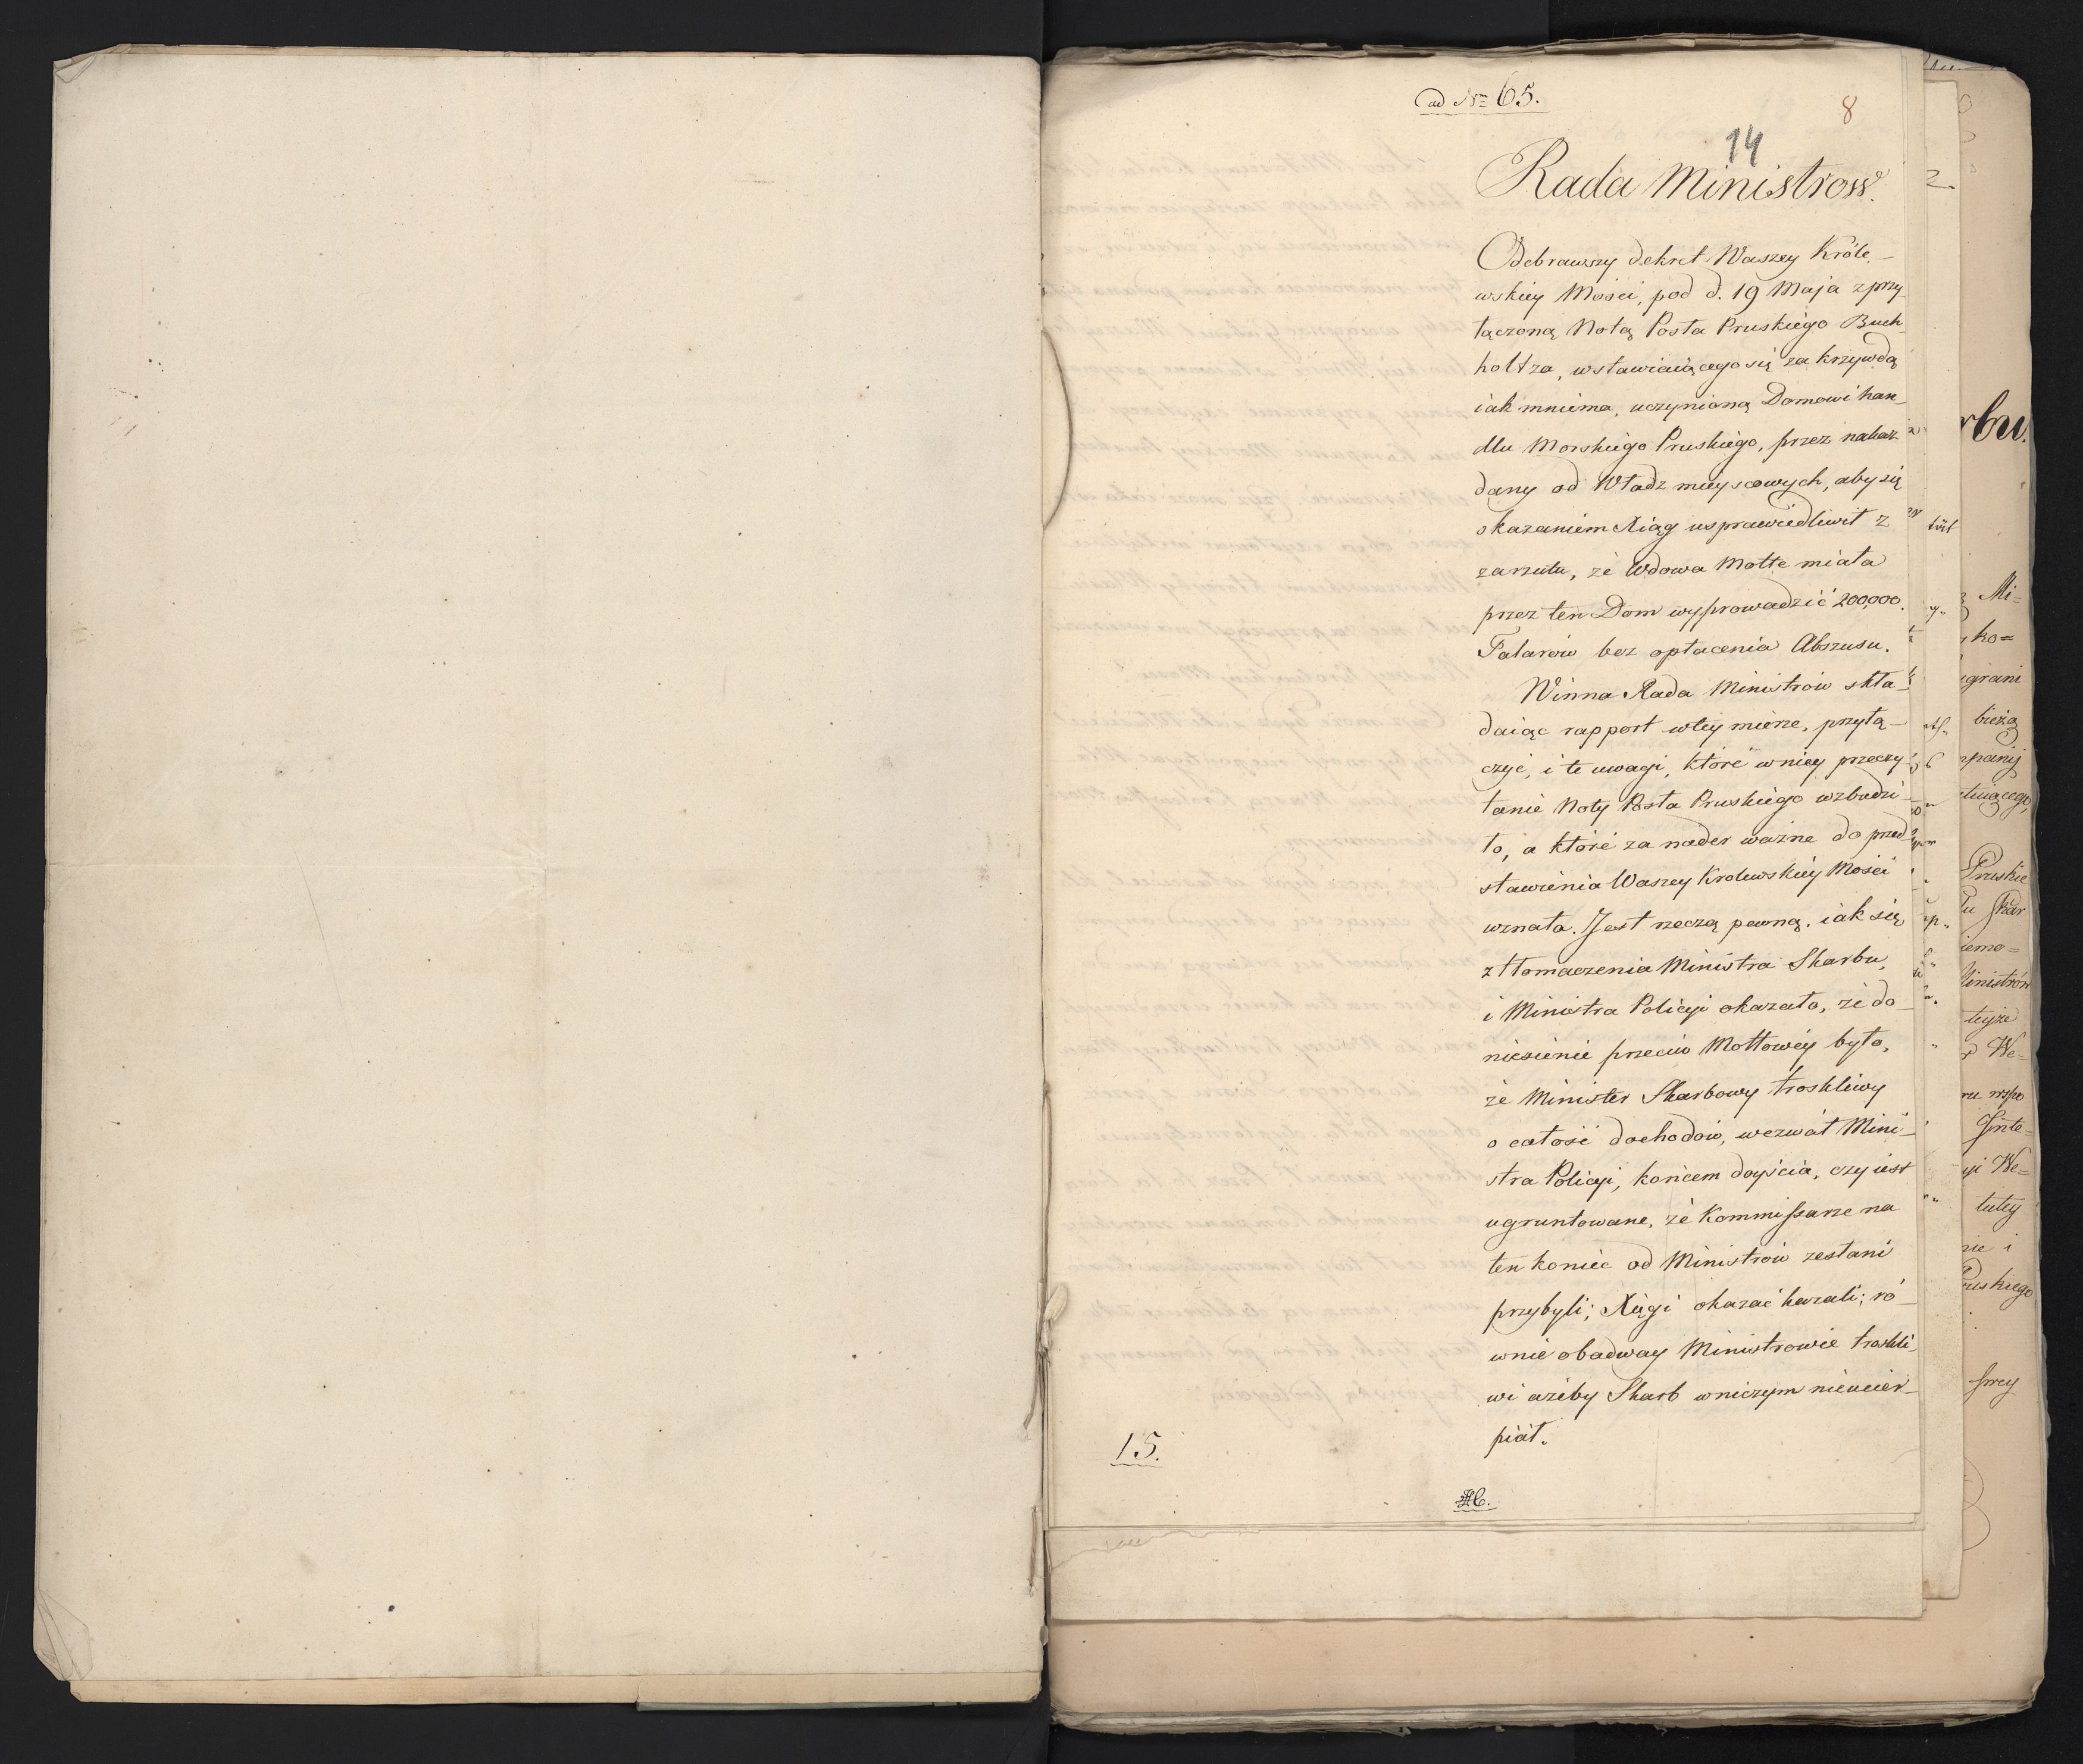 ad Nrm 65.
8
14
Rada Ministrow.
Odebrawszy dekret Waszey Króle-
wskiey Mosci, pod d. 19 Maja z przy-
łączoną Notą Posła Pruskiego Buch-
holtza, wstawiaiącego się za krzywdą
iak mniema, uczynioną Domowi han-
dlu Morskiego Pruskiego, przez nakaz
dany od Władz mieyscowych, aby się
okazaniem Xiąg usprawiedliwił z
zarzutu, że Wdowa Motte miała
przez ten Dom wyprowadzić 200,000.
Talarow bez opłacenia Abszusu.
Winna Rada Ministrow skła-
daiąc rapport wtey mierze, przyłą-
czyć, i te uwagi, które wniey przeczy-
tanie Noty Posła Pruskiego wzbudzi-
ło, a które za nader ważne do przed-
stawienia Waszey Krolewskiey Mosci
uznała. Jest rzeczą pewną, iak się
z tłomaczenia Ministra Skarbu,
i Ministra Policyi okazało, że do-
niesienie przeciw Mottowey było,
że Minister Skarbowy troskliwy
o całość dochodow, wezwał Mini-
stra Policyi, końcem doyścia, czy iest
ugruntowane, że Kommissarze na
ten koniec od Ministrow zesłani
przybyli; Xięgi okazać kazali; ró-
wnie obadway Ministrowie troskli-
wi ażeby Skarb wniczym nieucier-
piał.
15.
rbu.
Mi=
ko=
grani
bieżą
mpanij
Pruskie
Skar
iemo=
Ministrów
teyże
We=
Inte=
yi We=
tutey
nie i
Pruskiego